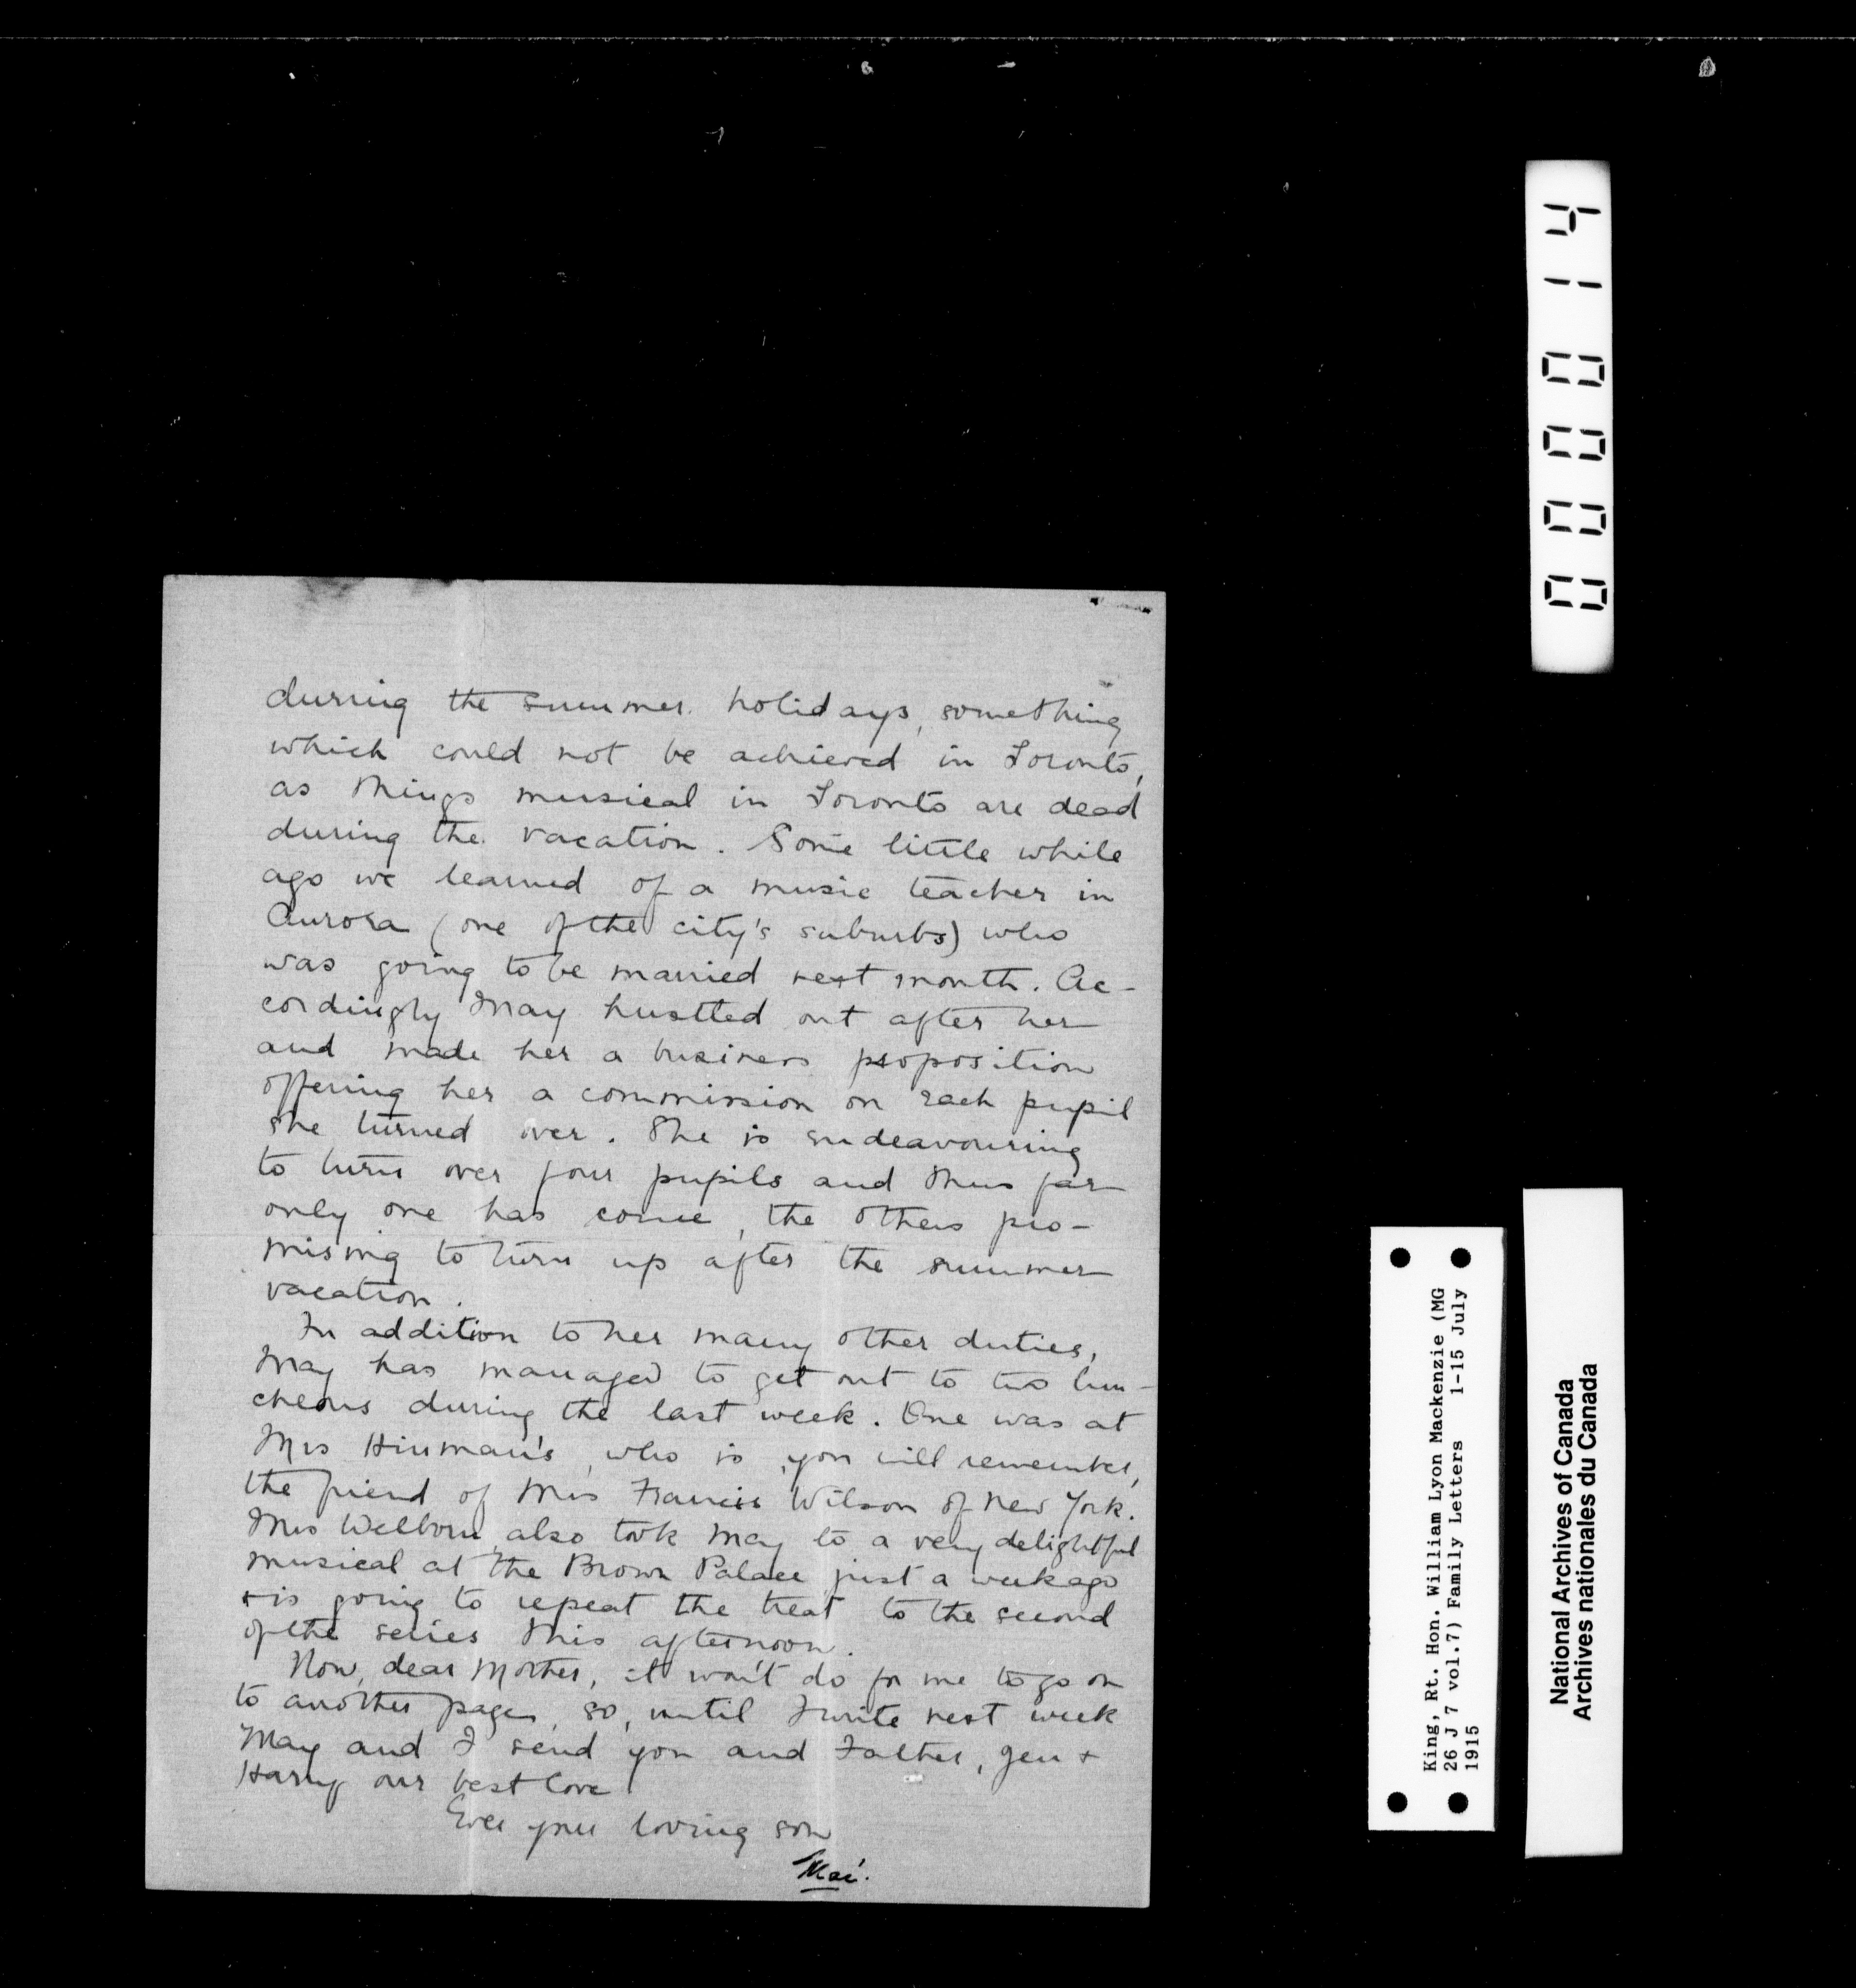 during the summer holidays, something
which could not be achieved in Toronto,
as things musical in Toronto are dead
during the vacation. Some little while
ago we learned of a music teacher in
Aurora (one of the city's suburbs) who
was going to be married next month. Ac-
cordingly May hustled out after her
and made her a business proposition
offering her a commission on each pupil
she turned over. She is endeavouring
to turn over four pupils and thus far
only one has come, the others pro-
mising to turn up after the summer
vacation.
In addition to her many other duties,
May has managed to get out to two lun-
cheons during the last week. One was at
Mrs Hinman's, who is, you will remember,
the friend of Mrs Francis Wilson of New York.
Mrs Welborn also took May to a very delightful
musical at the Brown Palace just a week ago
+ is going to repeat the treat to the second
of the series this afternoon.
Now, dear Mother, it won't do for me to go on
to another page, so, until I write next week
May and I send you and Father, Jen +
Harry our best love
Ever your loving son
Mac.
000014
King, Rt. Hon. William Lyon Mackenzie (MG
26 J 7 vol.7) Family Letters 1-15 July
1915
National Archives of Canada
Archives nationales du Canada